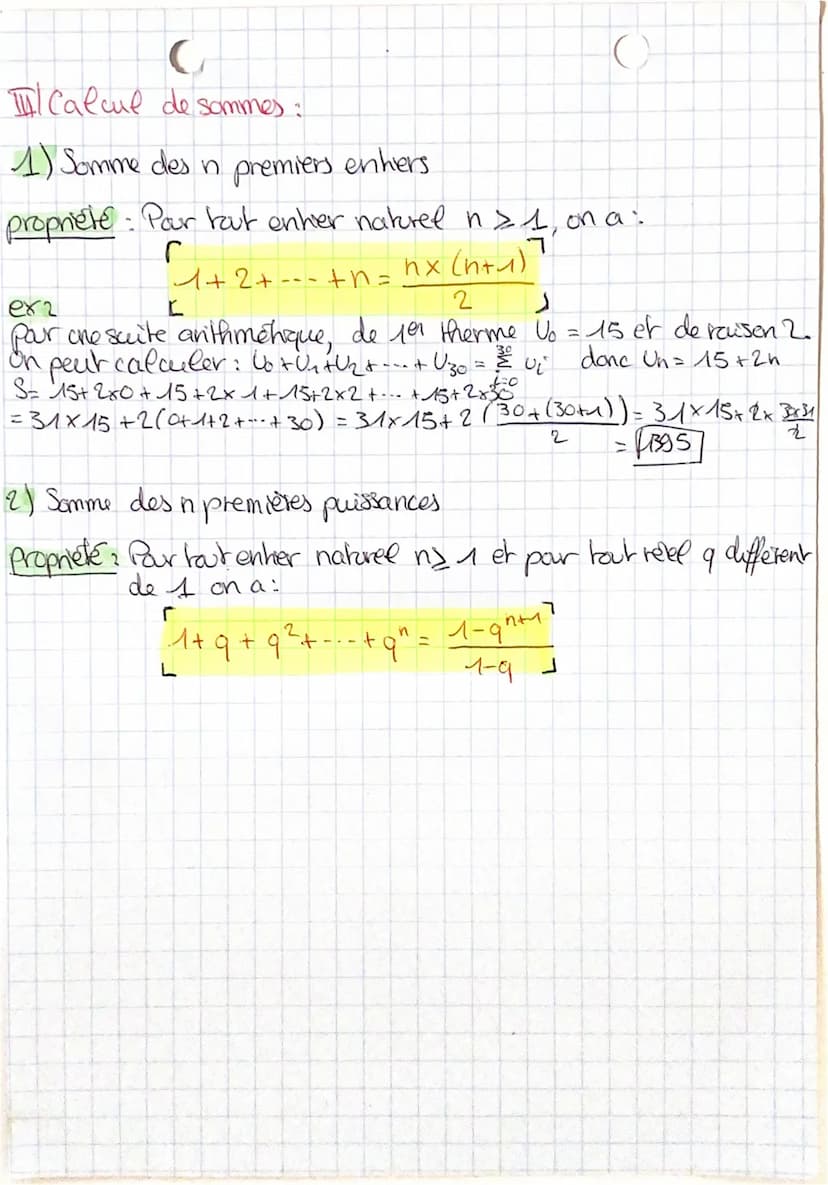 III/ Calcul de sommes :
1) Somme des n premiers entiers
propriété : Pour tout entier naturel n ≥ 1, on a :
1+2+----+n = n×(n+1)/2
ex :
pour une suite arithmétique, de 1er therme U₀ = 15 et de raison 2.
On peut calculer : U₀+U₁+U₂+----+U₃₀ = ³⁰Σᵢ₌₀ Uᵢ donc Un = 15+2n
S= 15+2×0+15+2×1+15+2×2+---+15+2×30
= 31×15+2(0+1+2+---+30) = 31×15+2(30+(30+1)/2) = 31×15+2×30×31/2
= 1395
2) Somme des n premières puissances
Propriété : Pour tout entier naturel n≥1 et pour tout réel q différent
de 1 on a :
1+q+q²+----+qⁿ = 1-qⁿ⁺¹/1-q